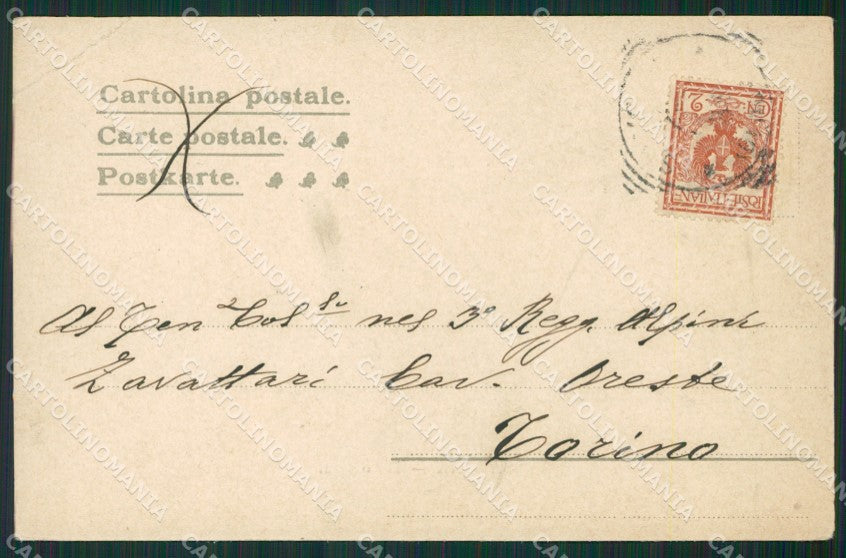 Cartolina postale.
Carte postale.
Postkarte.
CEN 2
POSTE ITALIANE
Al Ten Col nel 3° Regg. Alpini
Zavattari Cav. Oreste
Torino
CARTOLINOMANIA